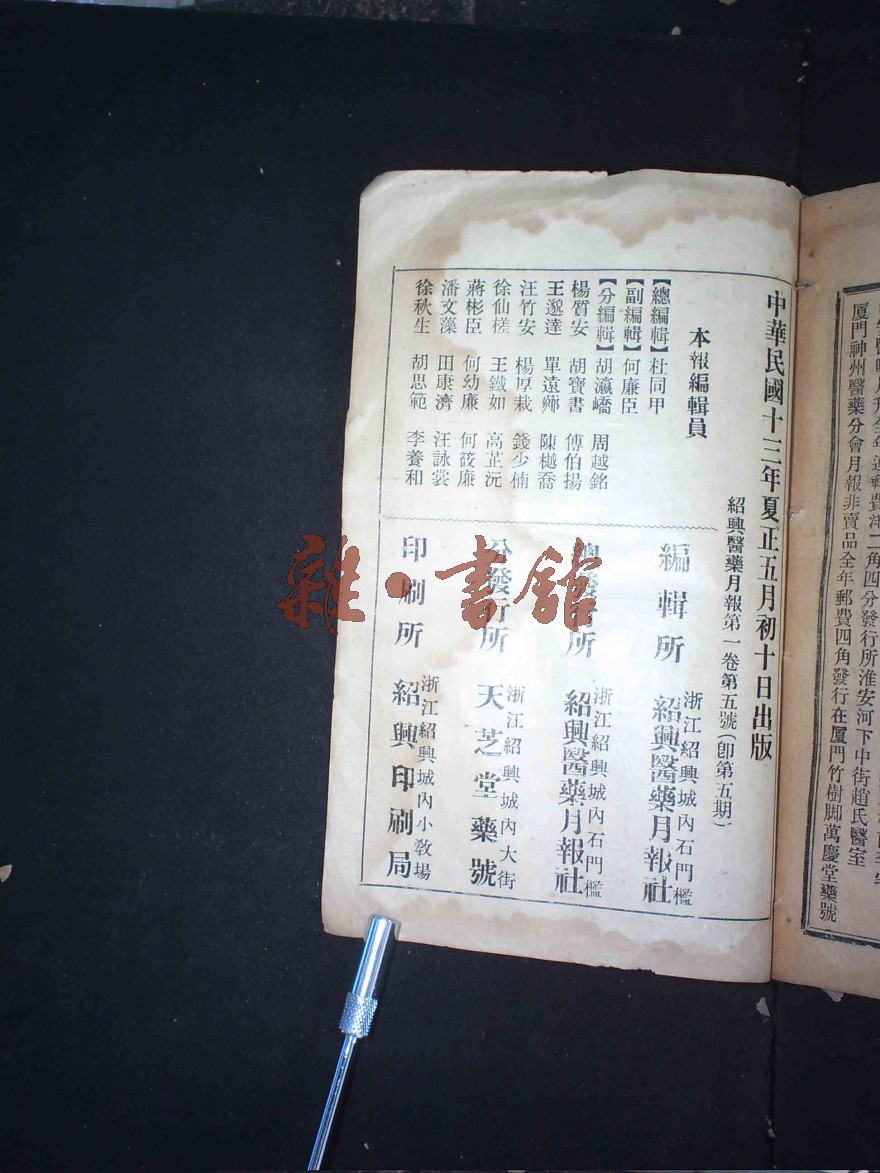 厦門神州醫藥分會月報非賣品全年郵費四角發行在厦門竹樹脚萬慶堂藥號
中華民國十三年夏正五月初十日出版
紹興醫藥月報第一卷第五號(卽第五期)
本報編輯員
【總編輯】杜同甲
【副編輯】何廉臣
【分編輯】胡瀛嶠 周越銘
楊質安 胡寶書 傅伯揚
王邈達 單遠鄊 陳樾喬
汪竹安 楊厚栽 錢少楠
徐仙槎 王鐵如 高芷沅
蔣彬臣 何幼廉 何筱廉
潘文藻 田康濟 汪詠裳
徐秋生 胡思範 李養和
編輯所 浙江紹興城內石門檻
紹興醫藥月報社
總發行所 浙江紹興城內石門檻
紹興醫藥月報社
分發行所 浙江紹興城內大街
天芝堂藥號
印刷所 浙江紹興城內小敎場
紹興印刷局
雜·書館